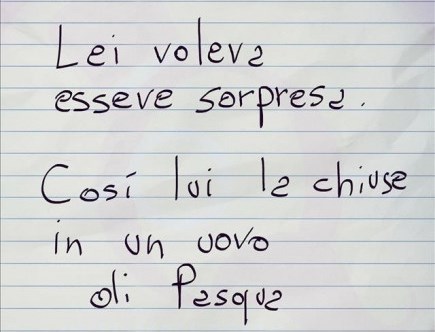 Lei voleva
essere sorpresa.
Così lui la chiuse
in un uovo
di Pasqua